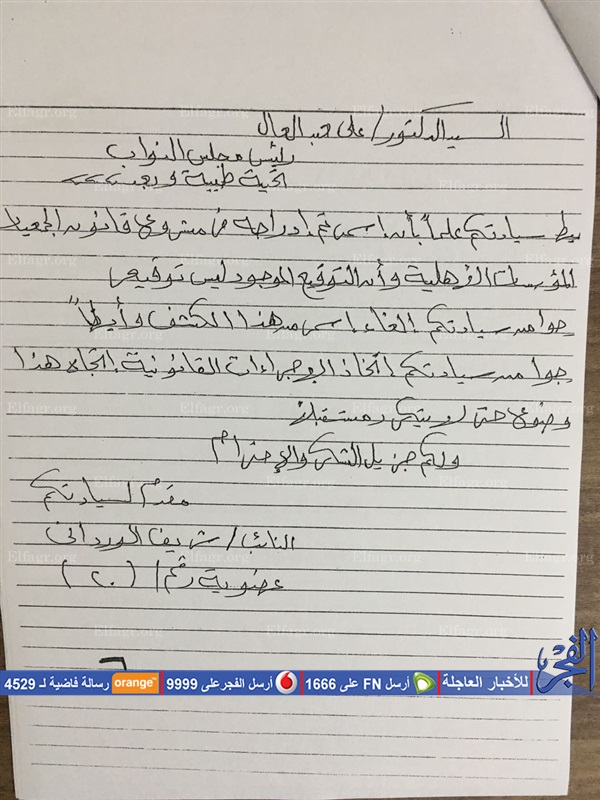 السيد الدكتور/ على عبد العال
رئيس مجلس النواب
تحية طيبة وبعد،،،،
يط سيادتكم علماً بأن اسمى تم إدراجه فى مشروع قانون الجمعيا
المؤسسات الأهلية وأن التوقيع الموجود ليس توقيعى
رجوا من سيادتكم إلغاء إسمى من هذا الكشف وأيضاً
رجوا من سيادتكم إتخاذ الإجراءات القانونية إتجاه هذا
وضوع حتى لا يتكرر مستقبلاً
ولكم جزيل الشكر والإحترام
مقدم لسيادتكم
النائب/ شريف الوردانى
عضوية رقم/ (٢٠)
الفجر
للأخبار العاجلة أرسل FN على 1666 أرسل الفجر على 9999 orange رسالة فاضية لـ 4529
Elfagr.org